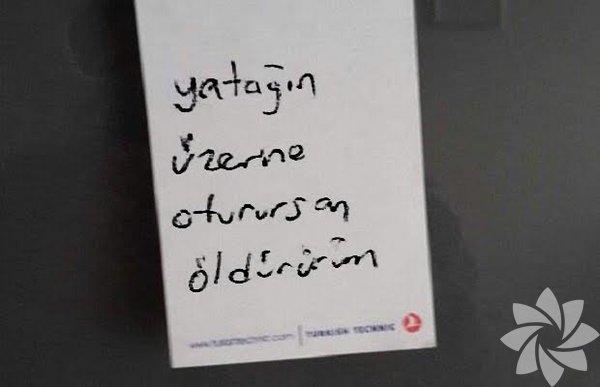 yatağın
üzerine
oturursan
öldürürüm
www.turkishtechnic.com | TURKISH TECHNIC